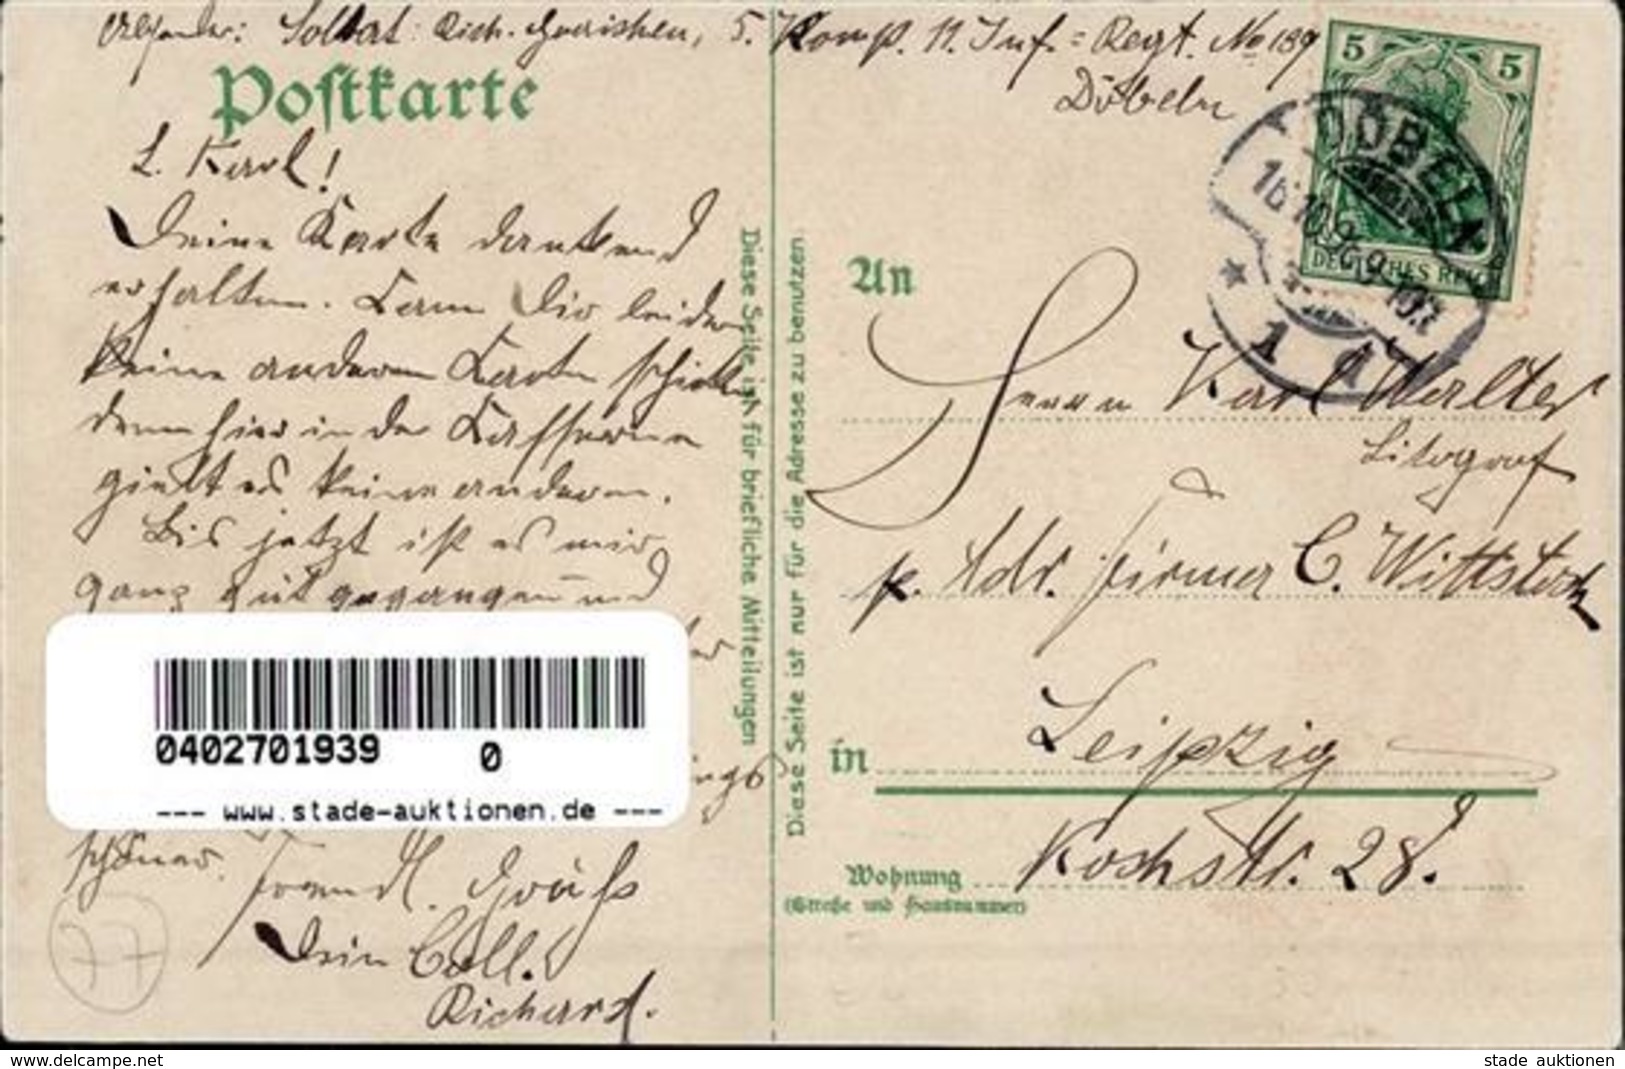 Absender: Soldat Rich. 5. Komp. 11. Inf.=Regt. No 139
Döbeln
Postkarte
5 5
DEUTSCHES REICH
DÖBELN
1
L. Karl!
Deine Karte dankend
erhalten. Kann Dir leider
keine anderen Karten schicken
denn hier in der Kasserne
giebt es keine anderen.
Bis jetzt ist es mir
ganz gut gegangen und
schöner.
Freundl. Grüße
Dein Coll.
Richard.
77
0402701939 0
--- www.stade-auktionen.de ---
Diese Seite ist für briefliche Mitteilungen
Diese Seite ist nur für die Adresse zu benutzen.
An
Herrn Karl Walter
Litograf
p. Adr. Firma C. Wittstock
in Leipzig
Wohnung Kochstr. 28.
(Straße und Hausnummer)
delcampe.net
stade auktionen